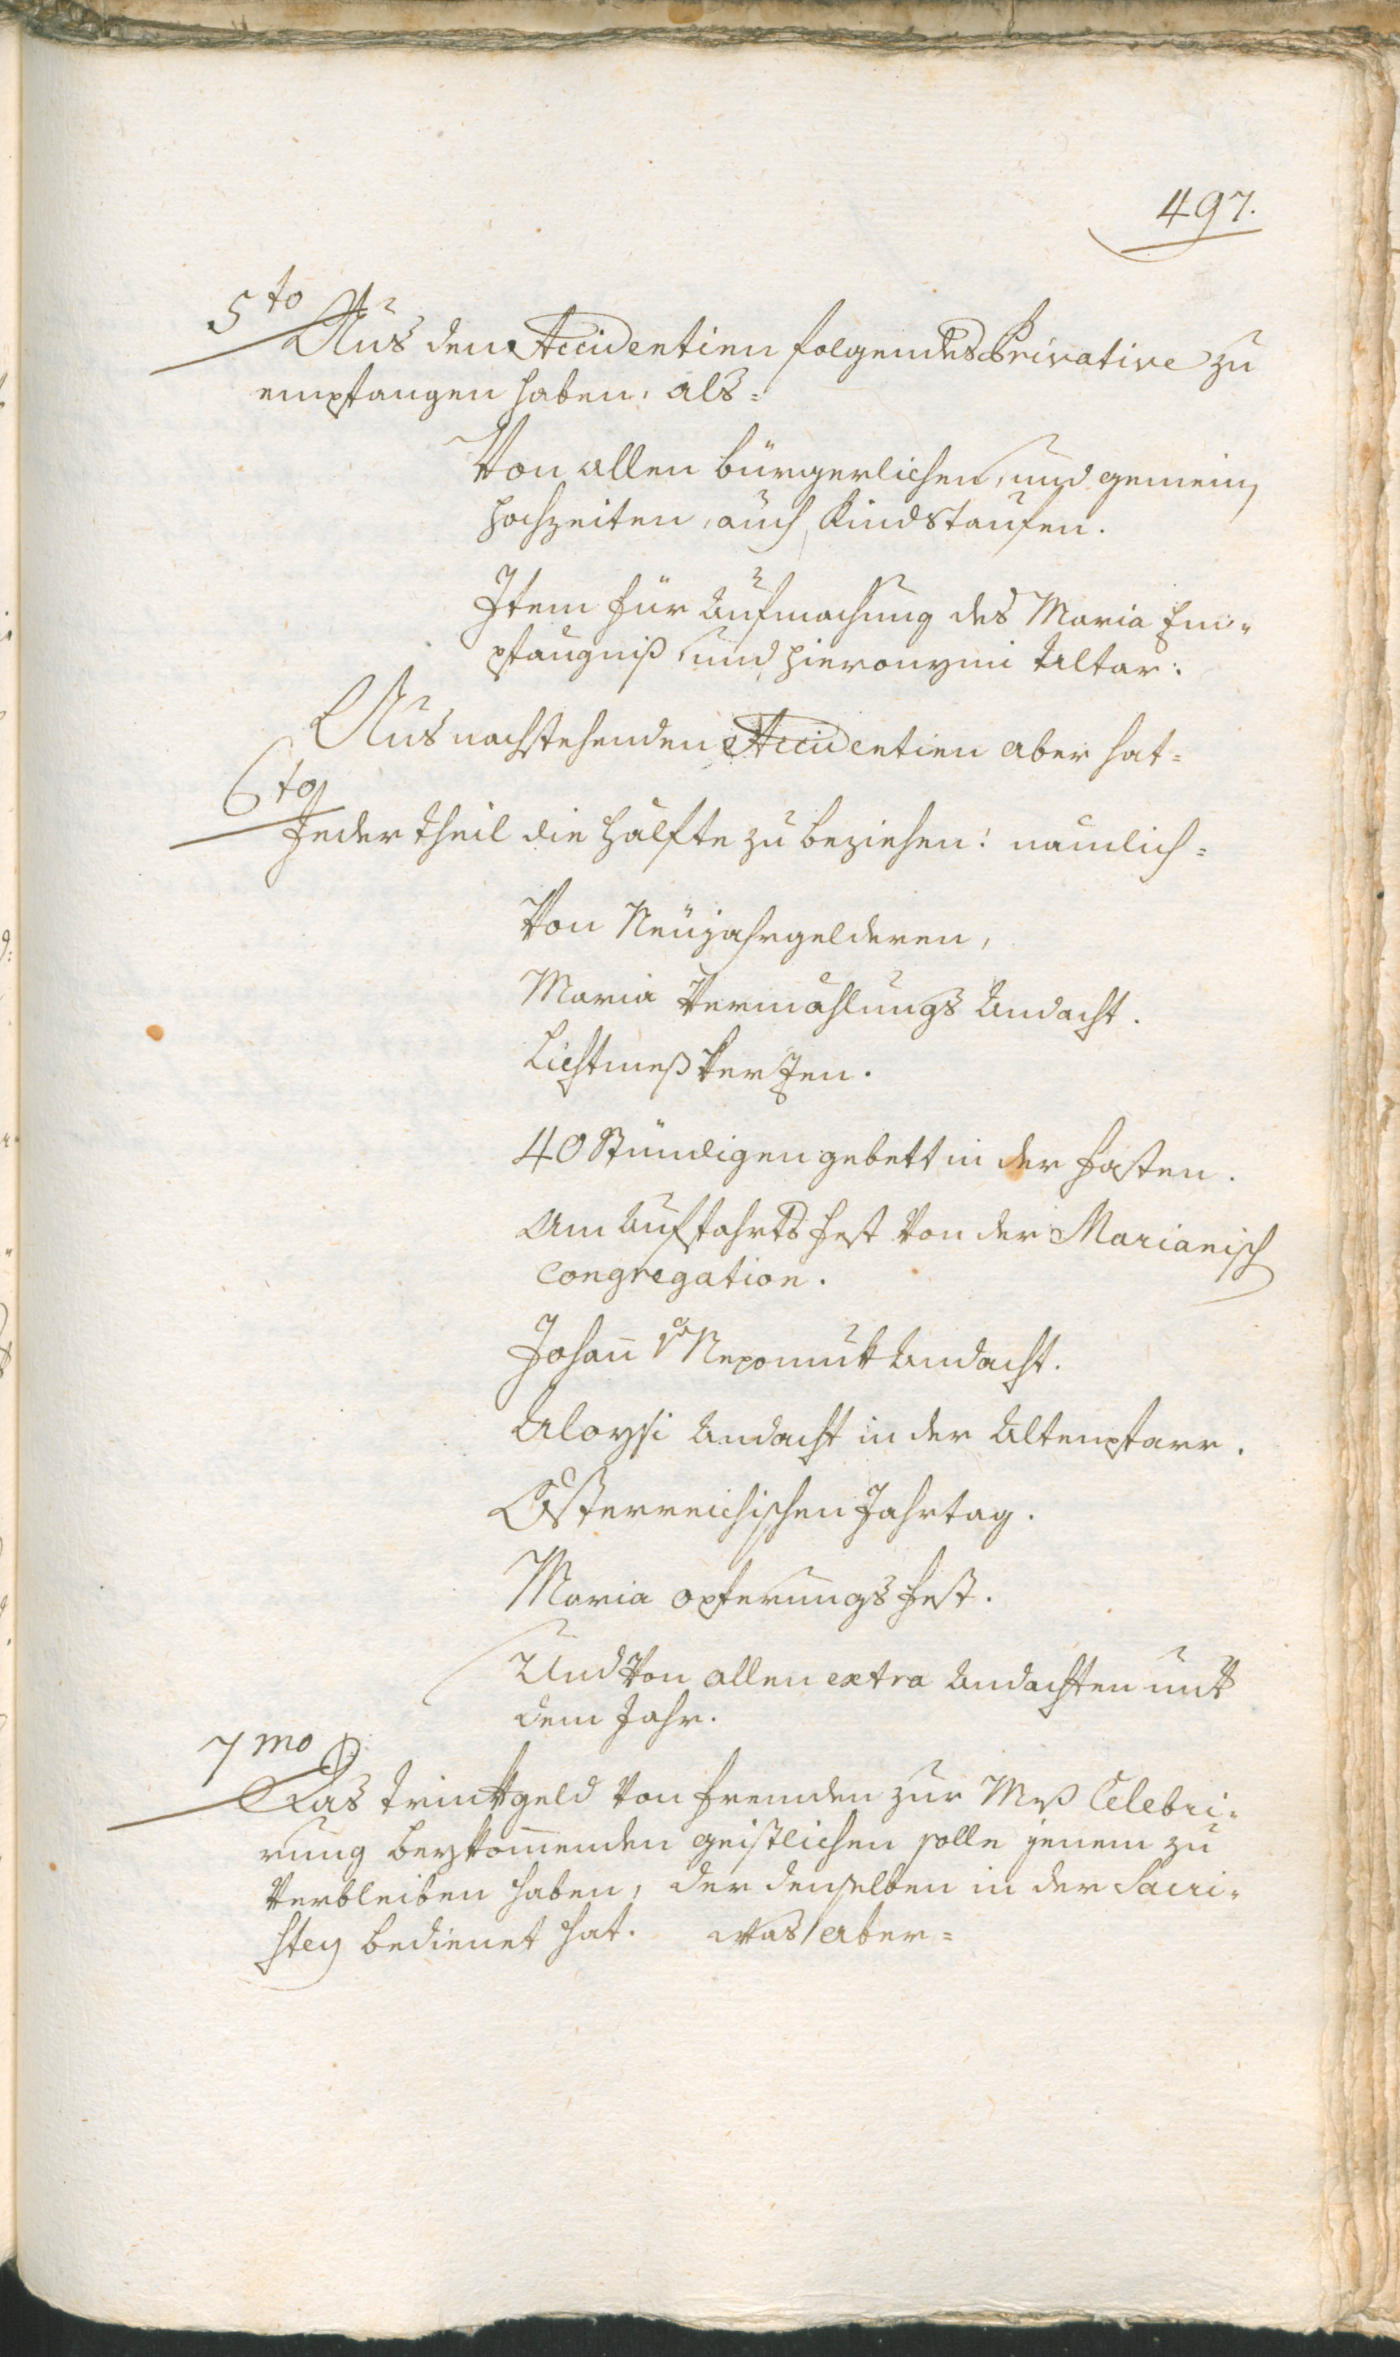 497.
5to
Aus den Accidentien folgendes Privative zu
empfangen haben, als:
Von allen bürgerlichen, und gemein
Hochzeiten, auch Kindstaufen.
Item für Aufmachung des Maria Em-
pfängniß, und Hieronymi Altar:
Aus nachstehenden Accidentien aber hat=
6to
Jeder Theil die Hälfte zu beziehen: nämlich=
Von Neüjahrgelderen,
Maria Vermählungs Andacht.
Lichtmeß Kerzen.
40 Stündigen gebett in der Fasten.
Am Auffahrts Fest von der Marianisch
Congregation.
Johann v Nepomuk Andacht.
Aloysi Andacht in der Altenpfarr.
Österreichischen Jahrtag.
Maria Opferungs Fest.
Und von allen extra Andachten unter
dem Jahr.
7mo
Das Trinkgeld von fremden zur Meß Celebri-
rung beykommenden geistlichen solle jenem zu
verbleiben haben, der denselben in der Sacri-
stey bedienet hat. was aber=